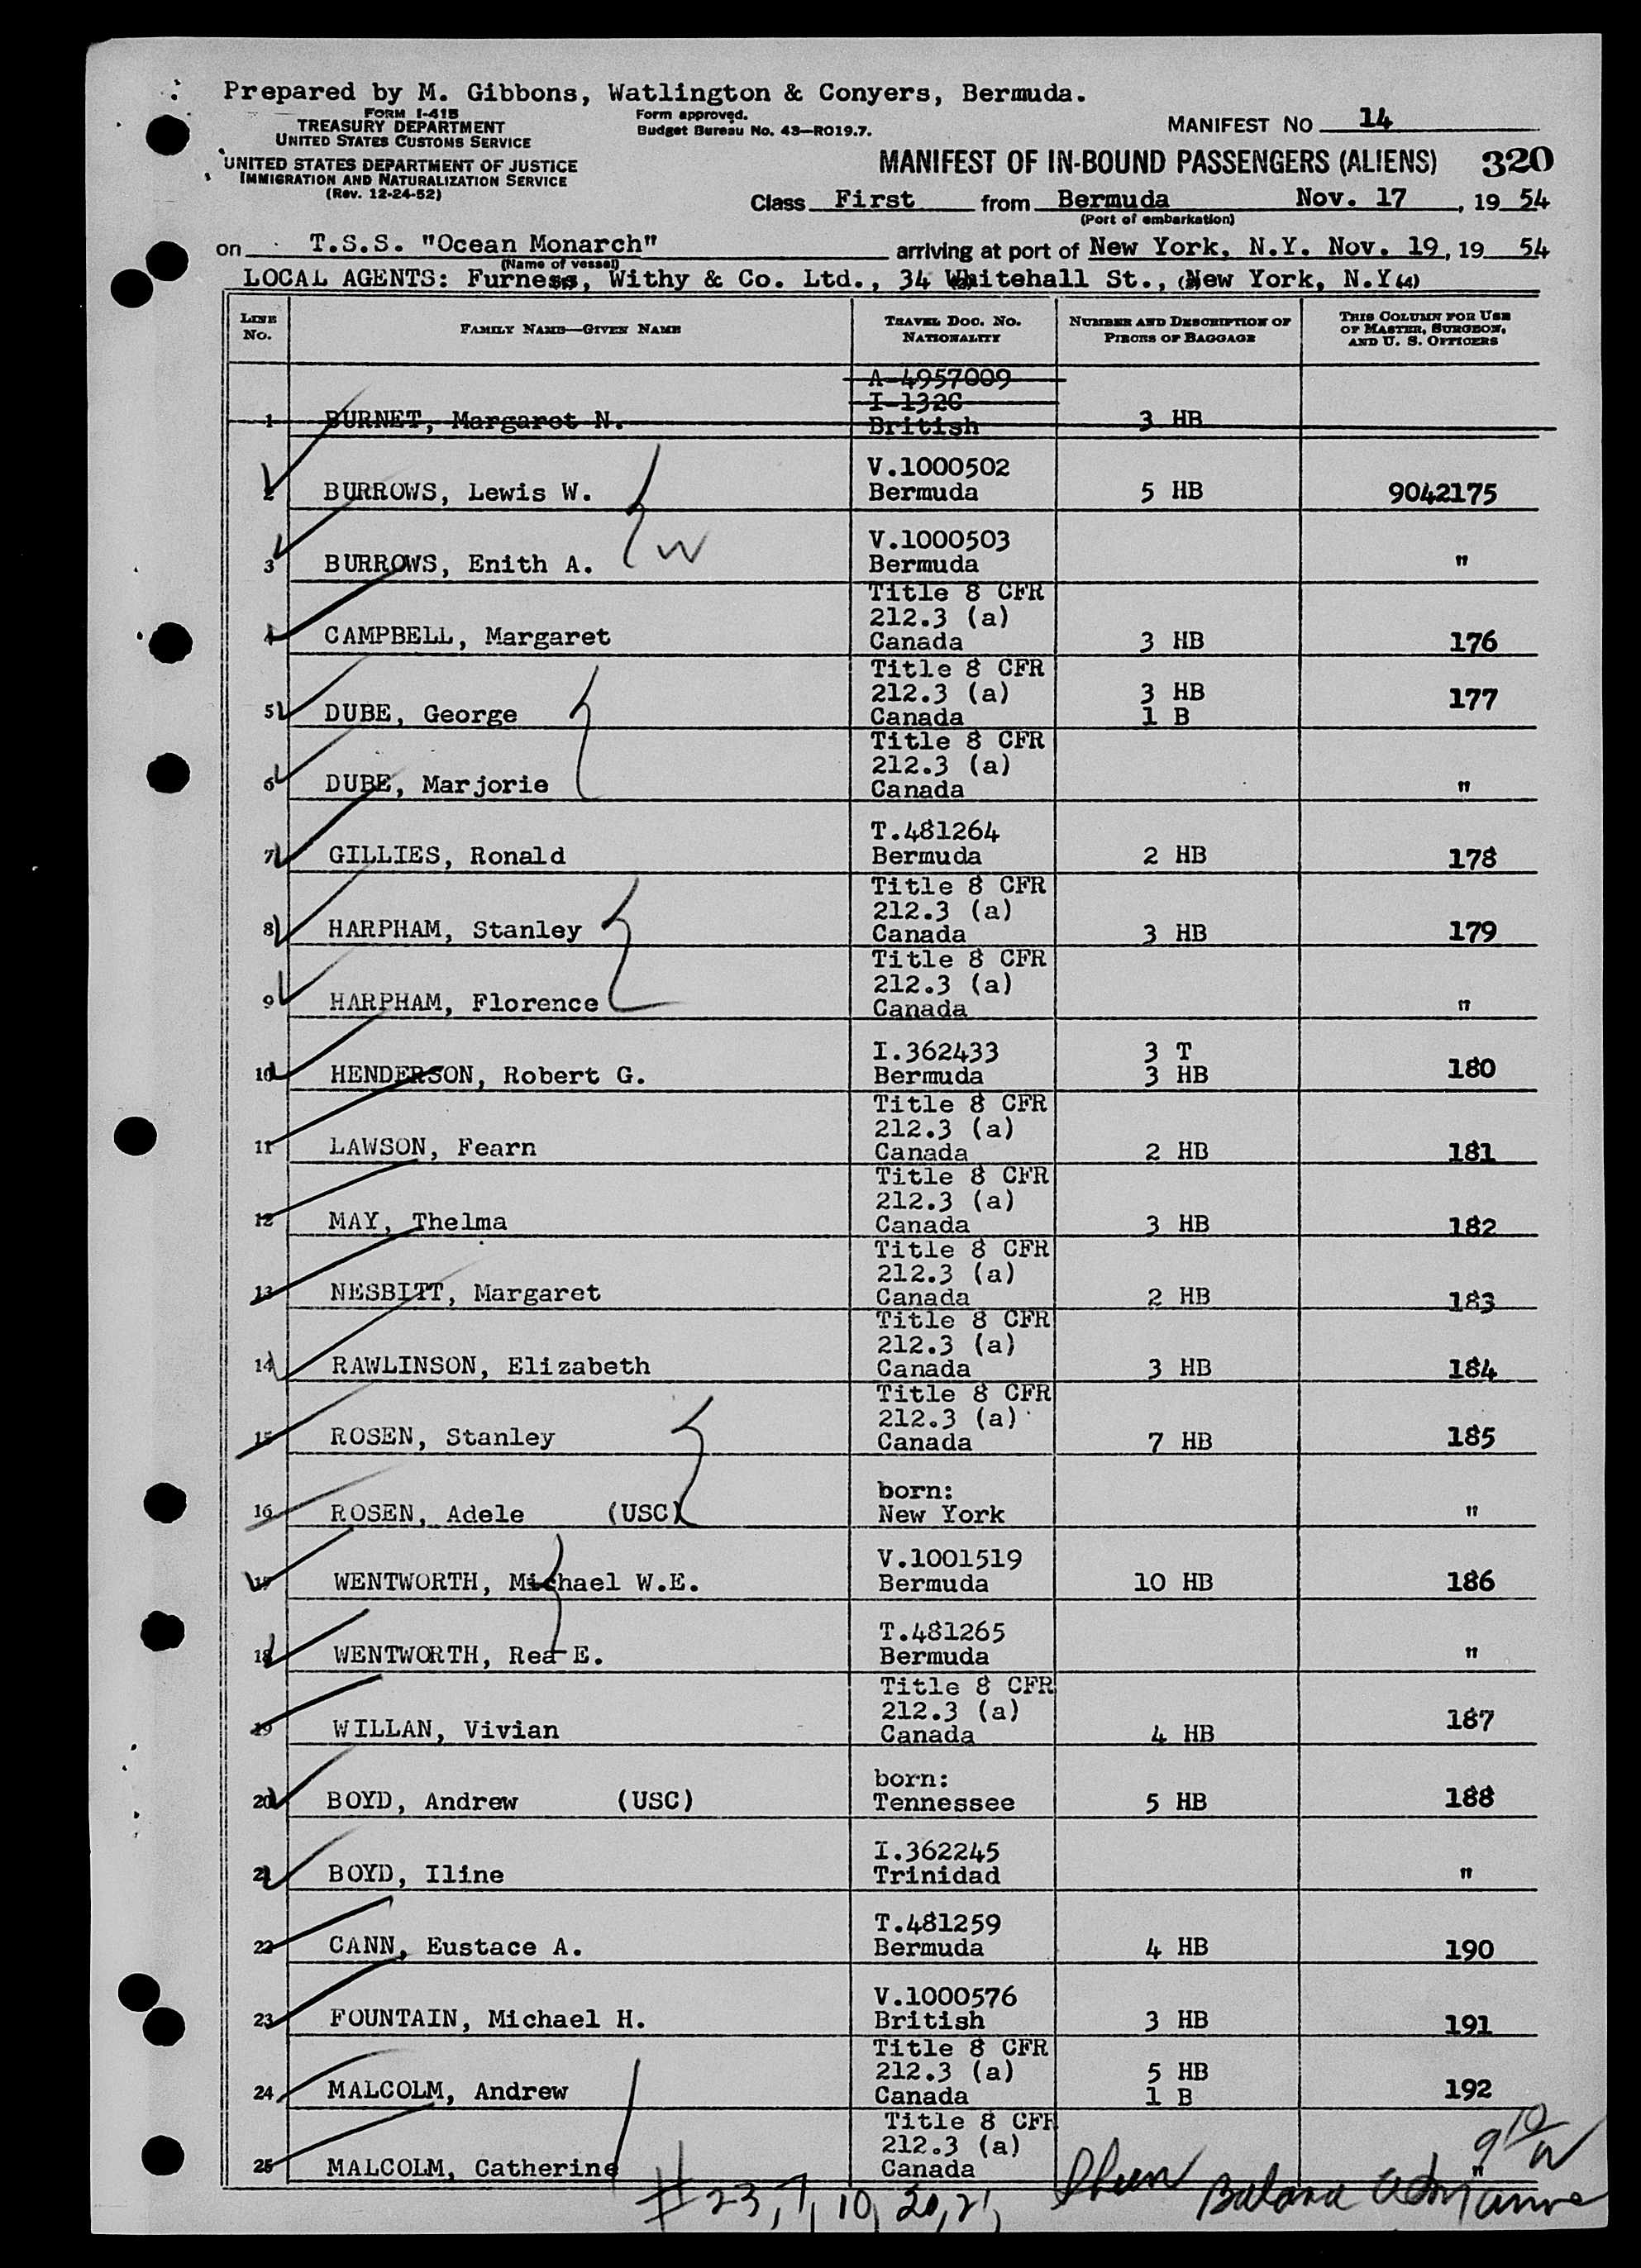 Prepared by M. Gibbons, Watlington & Conyers, Bermuda.
FORM I-415
TREASURY DEPARTMENT
UNITED STATES CUSTOMS SERVICE
UNITED STATES DEPARTMENT OF JUSTICE
IMMIGRATION AND NATURALIZATION SERVICE
(Rev. 12-24-52)
Form approved.
Budget Bureau No. 43—RO19.7.
MANIFEST NO 14
MANIFEST OF IN-BOUND PASSENGERS (ALIENS) 320
Class First from Bermuda Nov. 17, 19 54
(Port of embarkation)
on T.S.S. "Ocean Monarch" arriving at port of New York, N.Y. Nov. 19, 19 54
(Name of vessel)
LOCAL AGENTS: Furness, Withy & Co. Ltd., 34 Whitehall St., New York, N.Y.
LINE No. FAMILY NAME—GIVEN NAME TRAVEL DOC. NO. NATIONALITY NUMBER AND DESCRIPTION OF PIECES OF BAGGAGE THIS COLUMN FOR USE OF MASTER, SURGEON, AND U. S. OFFICERS
A-4957009
I-132C
1 BURNET, Margaret N. British 3 HB
V.1000502
2 BURROWS, Lewis W. Bermuda 5 HB 9042175
W
V.1000503
3 BURROWS, Enith A. Bermuda "
Title 8 CFR
212.3 (a)
4 CAMPBELL, Margaret Canada 3 HB 176
Title 8 CFR
212.3 (a) 3 HB 177
5 DUBE, George Canada 1 B
Title 8 CFR
212.3 (a)
6 DUBE, Marjorie Canada "
T.481264
7 GILLIES, Ronald Bermuda 2 HB 178
Title 8 CFR
212.3 (a)
8 HARPHAM, Stanley Canada 3 HB 179
Title 8 CFR
212.3 (a)
9 HARPHAM, Florence Canada "
I.362433 3 T
10 HENDERSON, Robert G. Bermuda 3 HB 180
Title 8 CFR
212.3 (a)
11 LAWSON, Fearn Canada 2 HB 181
Title 8 CFR
212.3 (a)
12 MAY, Thelma Canada 3 HB 182
Title 8 CFR
212.3 (a)
13 NESBITT, Margaret Canada 2 HB 183
Title 8 CFR
212.3 (a)
14 RAWLINSON, Elizabeth Canada 3 HB 184
Title 8 CFR
212.3 (a)
15 ROSEN, Stanley Canada 7 HB 185
born:
16 ROSEN, Adele (USC) New York "
V.1001519
17 WENTWORTH, Michael W.E. Bermuda 10 HB 186
T.481265
18 WENTWORTH, Rea E. Bermuda "
Title 8 CFR
212.3 (a)
19 WILLAN, Vivian Canada 4 HB 187
born:
20 BOYD, Andrew (USC) Tennessee 5 HB 188
I.362245
21 BOYD, Iline Trinidad "
T.481259
22 CANN, Eustace A. Bermuda 4 HB 190
V.1000576
23 FOUNTAIN, Michael H. British 3 HB 191
Title 8 CFR
212.3 (a) 5 HB
24 MALCOLM, Andrew Canada 1 B 192
Title 8 CFR
212.3 (a)
25 MALCOLM, Catherine Canada "
# 23, 7, 10, 20, 21,